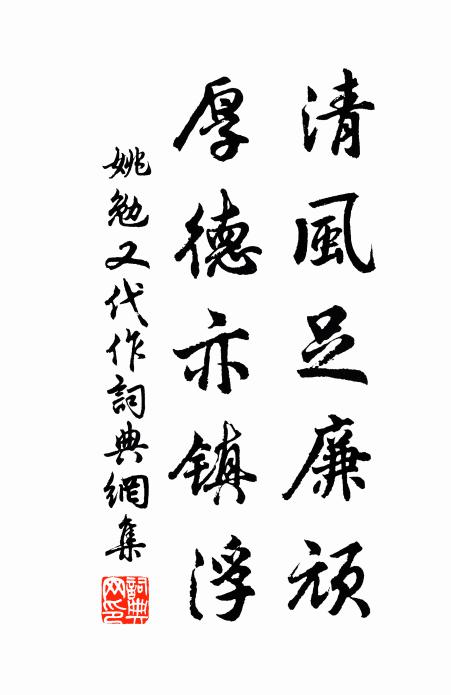 清風足廉頑
厚德亦镇浮
姚勉又代作詞典網集
詞典网印